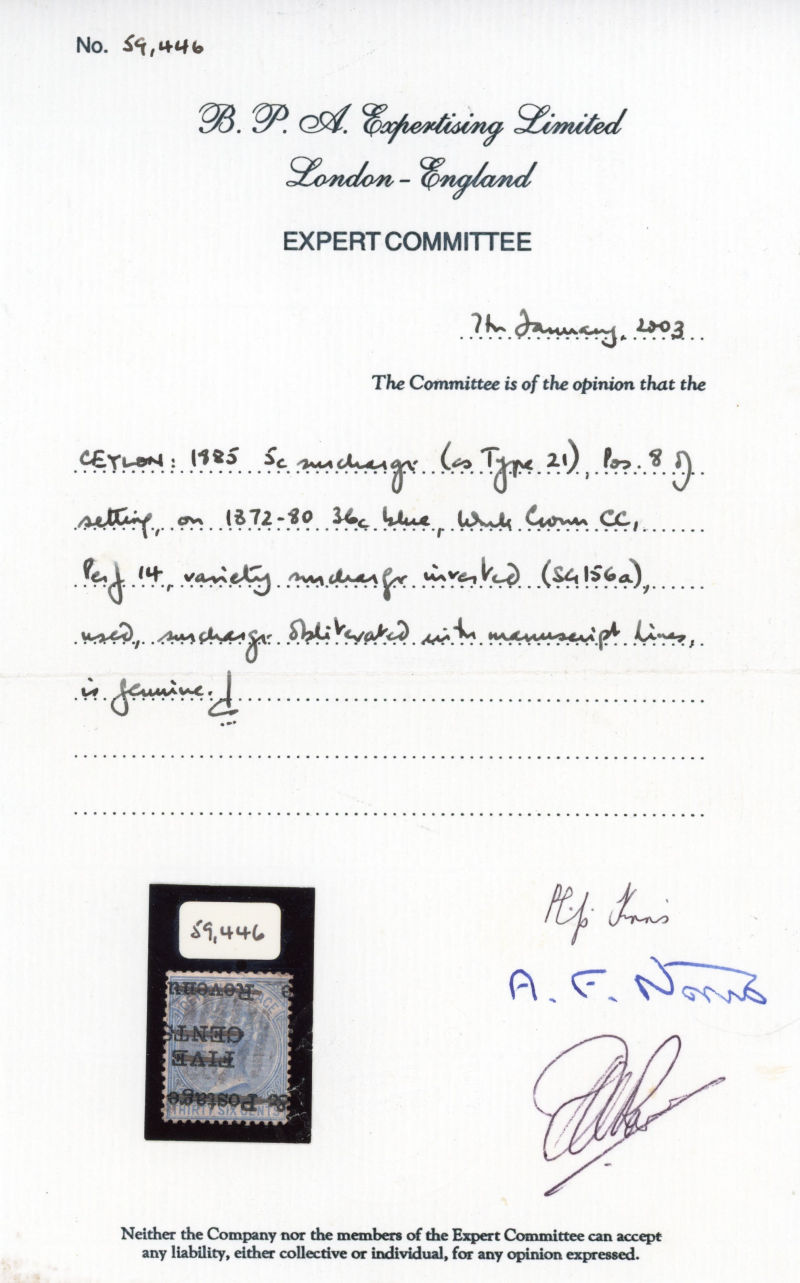 No. 59,446
B. P. A. Expertising Limited
London - England
EXPERT COMMITTEE
7th January, 2003
The Committee is of the opinion that the
CEYLON: 1885 5c surcharge (as Type 21), Pos. 8 of
setting, on 1872-80 36c blue, Wmk Crown CC,
Perf 14, variety surcharge inverted (SG156a),
used, surcharge obliterated with manuscript lines,
is genuine.
59,446
Revenu
CENTS
FIVE
& Postage
THIRTY SIX CENTS
A. F. Norris
Neither the Company nor the members of the Expert Committee can accept
any liability, either collective or individual, for any opinion expressed.